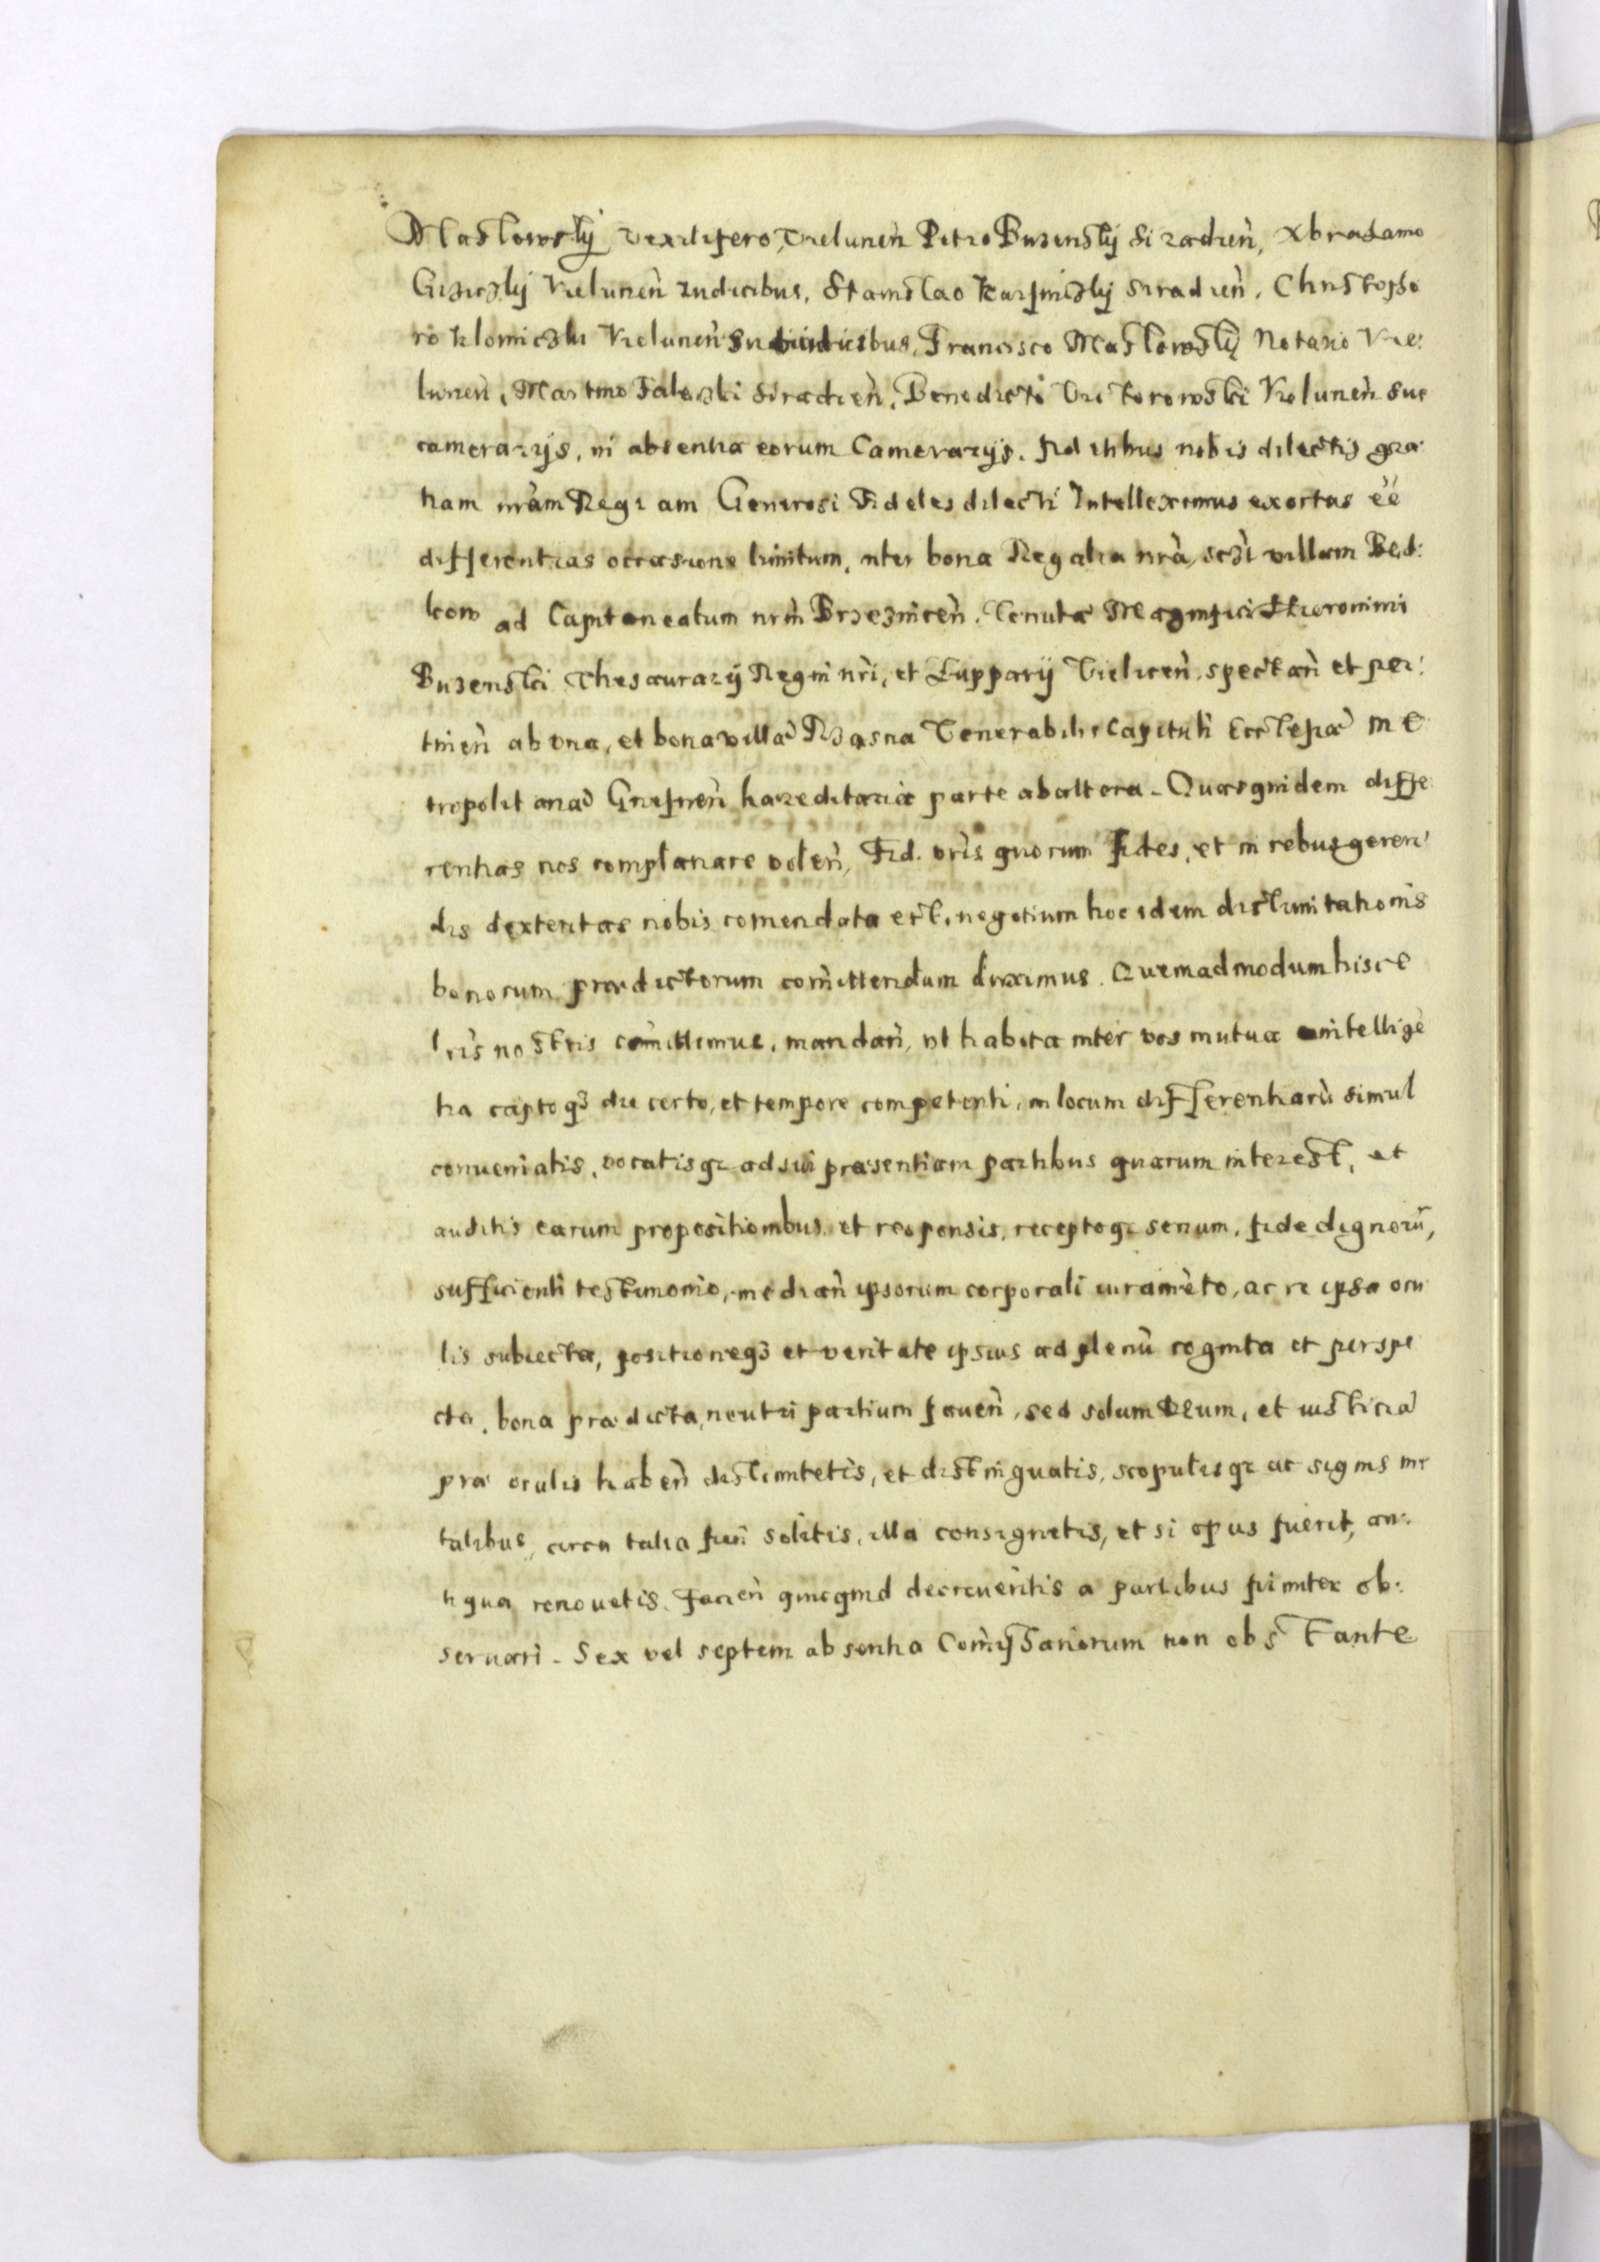 Maslowskÿ Vexilifero, Vielunen̄ Petro Buzenskÿ Siradien̄, Abrahamo
Giziczkÿ Vielunen̄ Iudicibus, Stanislao Karsniczkÿ Siradien̄, Christopho
ro Klomiczki Vielunen̄ Subiudicibus, Francisco Maslowskÿ Notario Vie:
lunen̄, Martino Faleczki Siradien̄, Benedicto Victorowski Vielunen̄ suc
camerarÿs, in absentia eorum Camerarÿs. fidelibus nobis dilectis gra
tiam nr̄am Regiam Generosi Fideles dilecti Intelleximus exortas eē
differentias occasione limitum, inter bona Regalia nr̄a, sczi villam Bed:
kow ad Capitaneatum nrm̄ Brzeznicen̄. Tenutæ Magnifici Hieronimi
Buzenski Thesaurarÿ Regni nr̄i, et Zupparÿ Vielicen̄. spectan̄ et per:
tinen̄ ab una, et bona villā Rzasna Venerabilis Capituli Ecclesiæ Me
tropolitanæ Gnesnen̄ hæreditariæ parte ab altera. Quas quidem diffe
rentias nos complanare volen̄, Fid. vrīs quorum fides, et in rebus geren
dis dexteritas nobis comendata est, negotium hoc idem dislimitationis
bonorum prædictorum com̄ittendum duximus. Quemadmodum hisce
lrīs nostris com̄ittimus, mandan̄, ut habita inter vos mutua intelligē
tia captoq₃ die certo, et tempore competenti, in locum differentiarū simul
conueniatis, vocatisq₃ ad sui præsentiam partibus quarum interest, et
auditis earum propositionibus et responsis, receptoq₃ senum, fide dignorū,
sufficienti testimonio, median̄ ipsorum corporali iuramēto, ac re ipsa ocu
lis subiecta, positioneq₃ et veritate ipsius ad plenū cognita et perspe
cta, bona prædicta, neutri partium fauen̄, sed solum Deum, et iusticiā
præ oculis haben̄ dislimitetis, et distinguatis, scopulisq₃ ac signis me
talibus, circa talia fieri solitis, illa consignetis, et si opus fuerit, an:
tiqua renouetis. facien̄ quicquid decreueritis a partibus firmiter ob:
seruari. Sex vel septem absentia Com̄issariorum non obstante